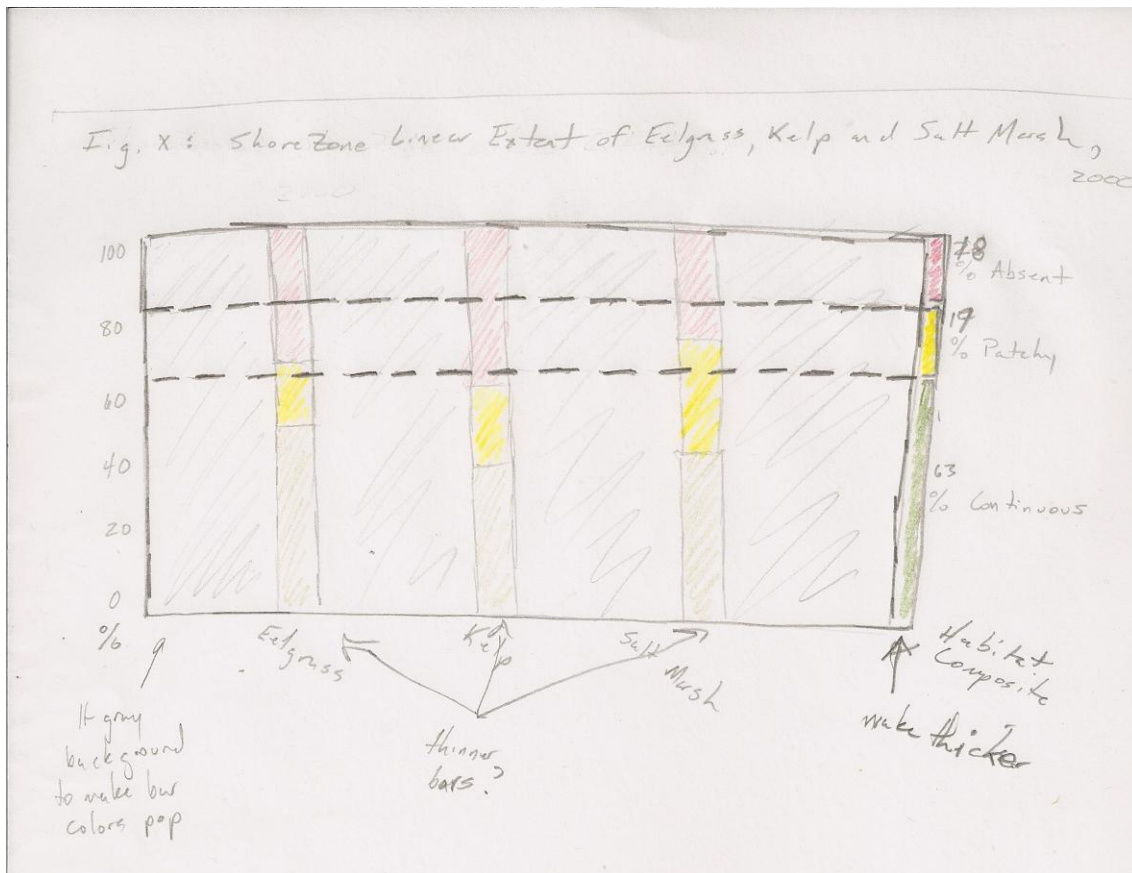 Fig. X: ShoreZone Linear Extent of Eelgrass, Kelp and Salt Marsh,
2000
100
80
60
40
20
0
%
18
% Absent
19
% Patchy
63
% Continuous
Eelgrass
Kelp
Salt
Marsh
Habitat
Composite
lt gray
background
to make bar
colors pop
thinner
bars?
make thicker